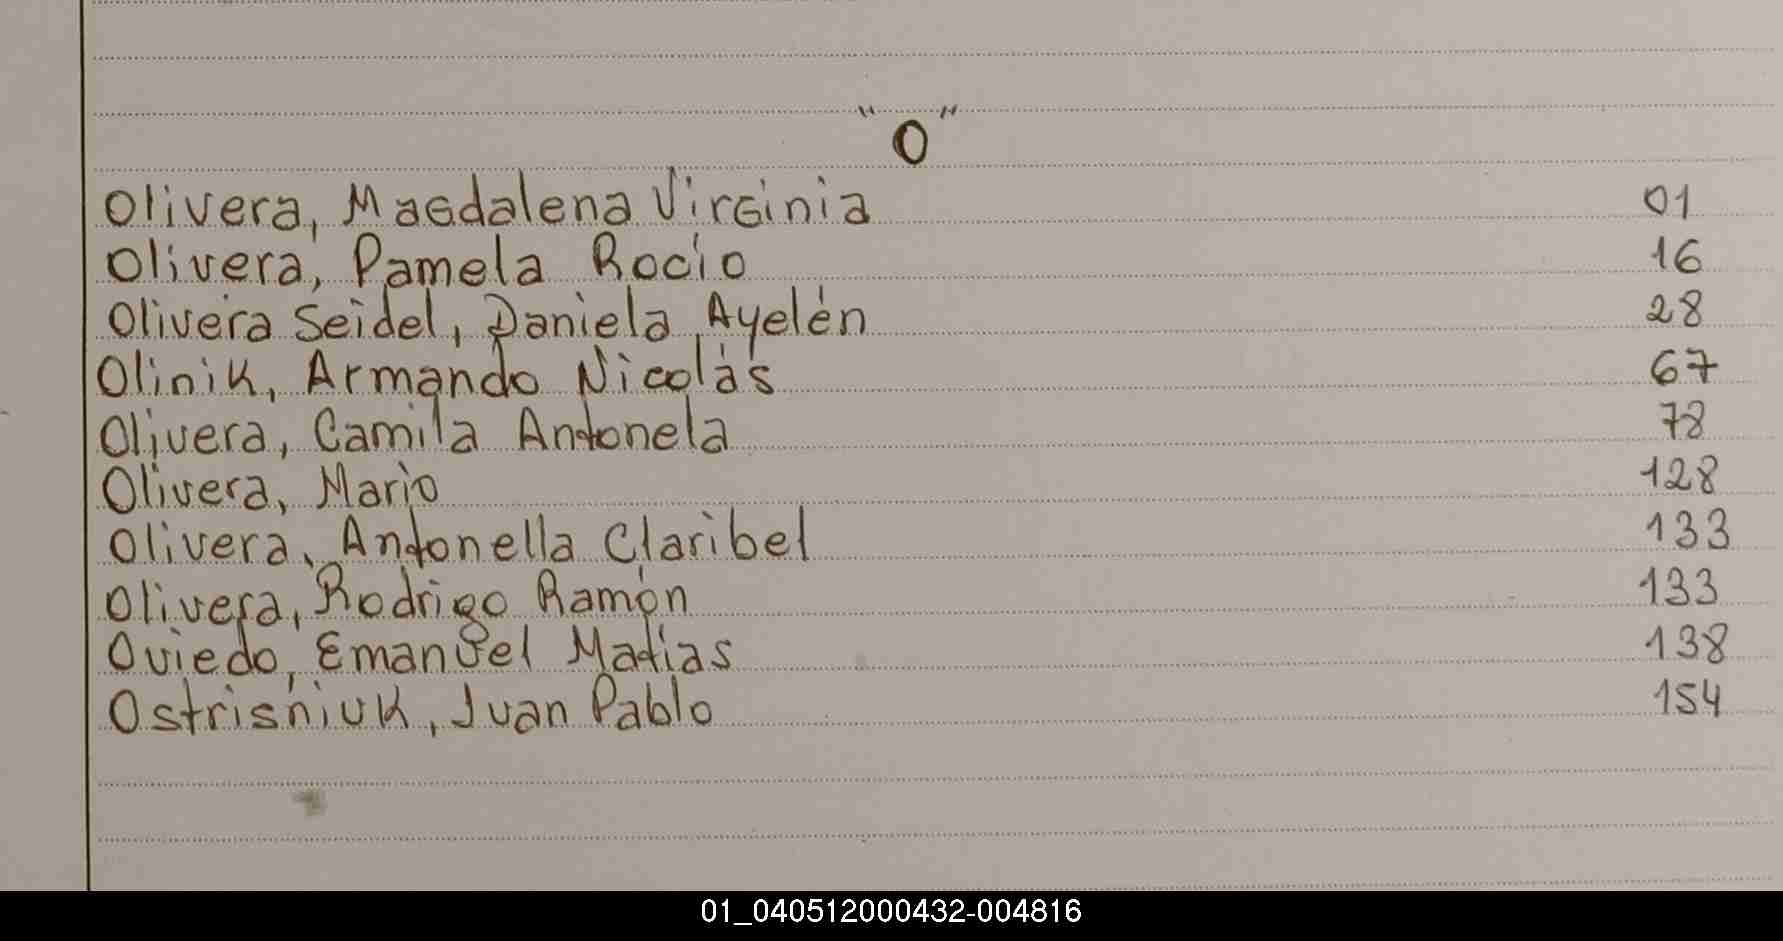 "O"
Olivera, Magdalena Virginia 01
Olivera, Pamela Rocío 16
Olivera Seidel, Daniela Ayelén 28
Olinik, Armando Nicolás 67
Olivera, Camila Antonela 78
Olivera, Mario 128
Olivera, Antonella Claribel 133
Olivera, Rodrigo Ramón 133
Oviedo, Emanuel Matías 138
Ostrisniuk, Juan Pablo 154
01_040512000432-004816